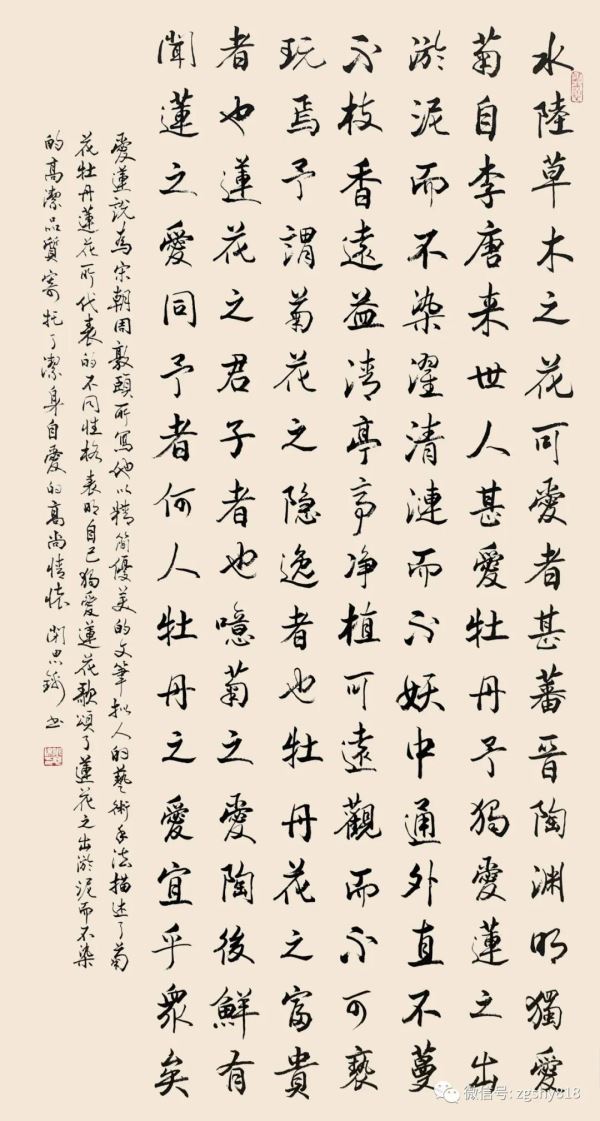 水陸草木之花可愛者甚蕃晉陶渊明獨愛
菊自李唐来世人甚愛牡丹予独愛蓮之出
淤泥而不染濯清漣而不妖中通外直不蔓
不枝香遠益清亭亭净植可遠觀而不可褻
玩焉予謂菊花之隐逸者也牡丹花之富貴
者也蓮花之君子者也噫菊之愛陶後鮮有
聞蓮之愛同予者何人牡丹之愛宜乎衆矣
愛蓮説為宋朝周敦頤所寫她以精简優美的文筆拟人的藝術手法描述了菊
花牡丹蓮花所代表的不同性格表明自己独愛蓮花歌頌了蓮花之出淤泥而不染
的高潔品質寄托了潔身自愛的高尚情懷 书
微信号: